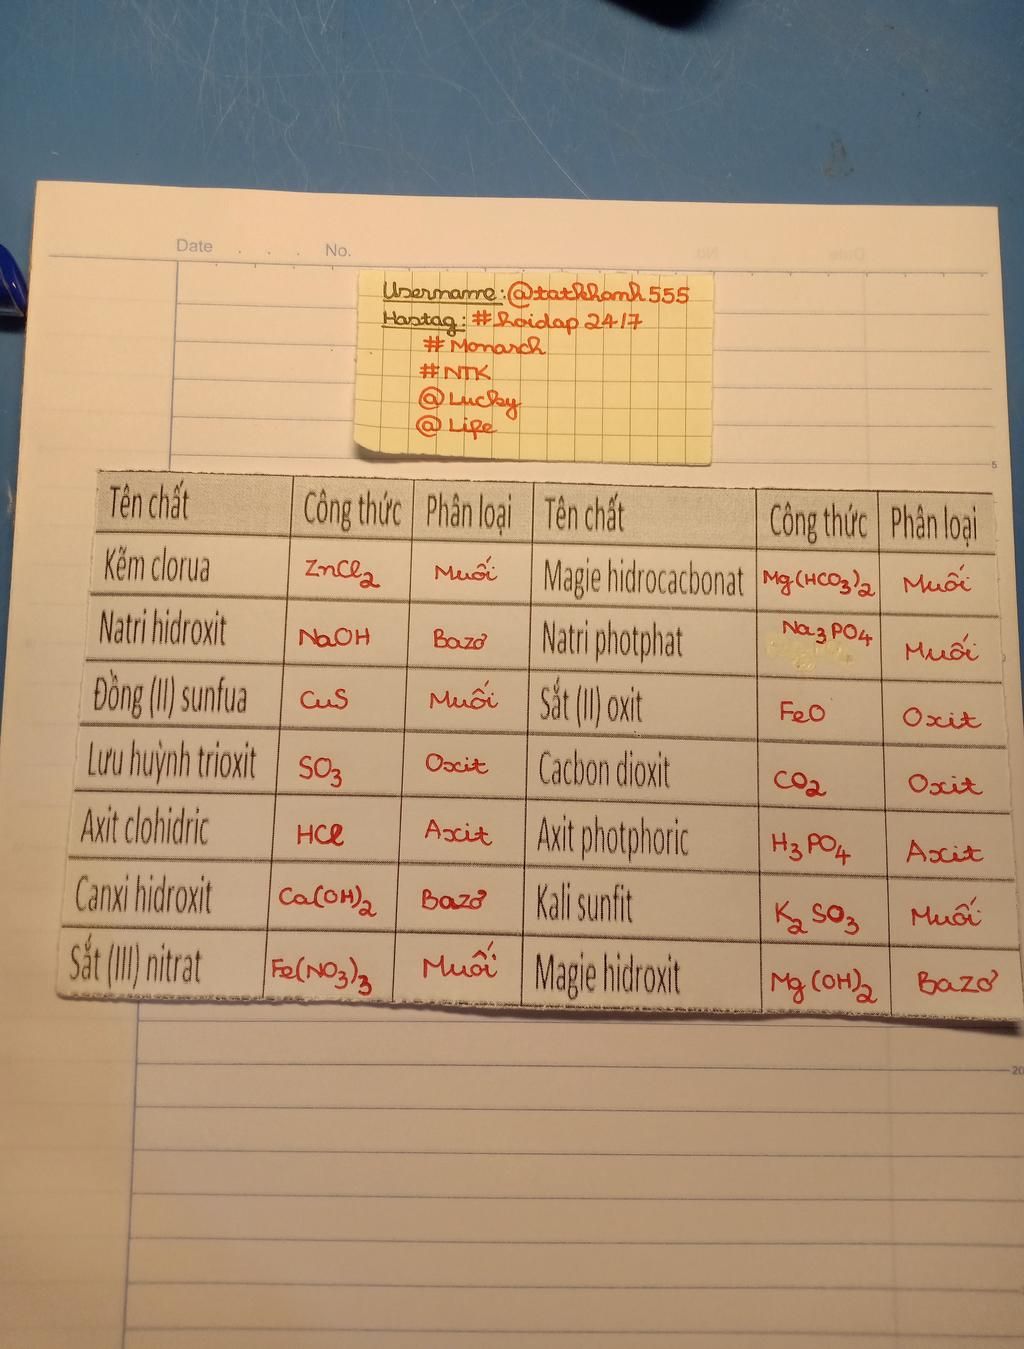 Date . . . . No.
Username: @tatkhanh555
Hastag: #hoidap 24/7
#Monarch
#NTK
@Lucky
@Life
5
Tên chất Công thức Phân loại Tên chất Công thức Phân loại
Kẽm clorua ZnCl2 Muối Magie hidrocacbonat Mg(HCO3)2 Muối
Natri hidroxit NaOH Bazơ Natri photphat Na3PO4 Muối
Đồng (II) sunfua CuS Muối Sắt (II) oxit FeO Oxit
Lưu huỳnh trioxit SO3 Oxit Cacbon dioxit CO2 Oxit
Axit clohidric HCl Axit Axit photphoric H3PO4 Axit
Canxi hidroxit Ca(OH)2 Bazơ Kali sunfit K2SO3 Muối
Sắt (III) nitrat Fe(NO3)3 Muối Magie hidroxit Mg(OH)2 Bazơ
20